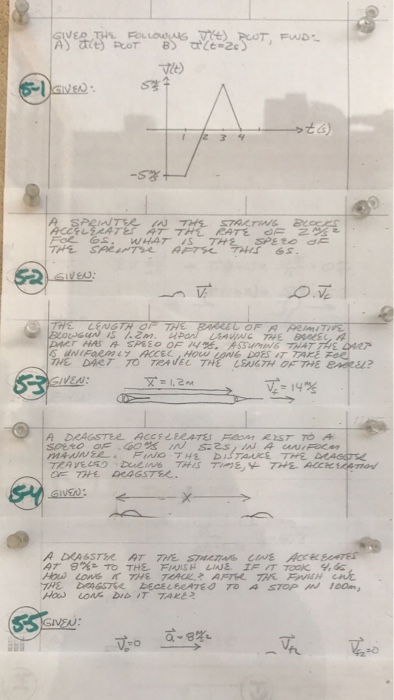 GIVEN THE FOLLOWING V(t) PLOT, FIND:
A) a(t) PLOT B) a(t=2s)
V(t)
5-1 GIVEN:
5 m/s
1 2 3 4 t(s)
-5 m/s
A SPRINTER IN THE STARTING BLOCKS
ACCELERATES AT THE RATE OF 2 m/s²
FOR 6s. WHAT IS THE SPEED OF
THE SPRINTER AFTER THIS 6s.
5-2 GIVEN:
THE LENGTH OF THE BARREL OF A PRIMITIVE
BLOWGUN IS 1.2m. UPON LEAVING THE BARREL, A
DART HAS A SPEED OF 14 m/s. ASSUMING THAT THE DART
IS UNIFORMLY ACCEL, HOW LONG DOES IT TAKE FOR
THE DART TO TRAVEL THE LENGTH OF THE BARREL?
5-3 GIVEN: X = 1.2m Vf = 14 m/s
A DRAGSTER ACCELERATES FROM REST TO A
SPEED OF 60 m/s IN 5.2s, IN A UNIFORM
MANNER. FIND THE DISTANCE THE DRAGSTER
TRAVELED DURING THIS TIME, & THE ACCELERATION
OF THE DRAGSTER.
5-4 GIVEN: X
A DRAGSTER AT THE STARTING LINE ACCELERATES
AT 8 m/s² TO THE FINISH LINE IF IT TOOK 4.6s,
HOW LONG IS THE TRACK? AFTER THE FINISH LINE
THE DRAGSTER DECELERATED TO A STOP IN 100m,
HOW LONG DID IT TAKE?
5-5 GIVEN:
V₀=0 a=8 m/s² Vf1 Vf2=0